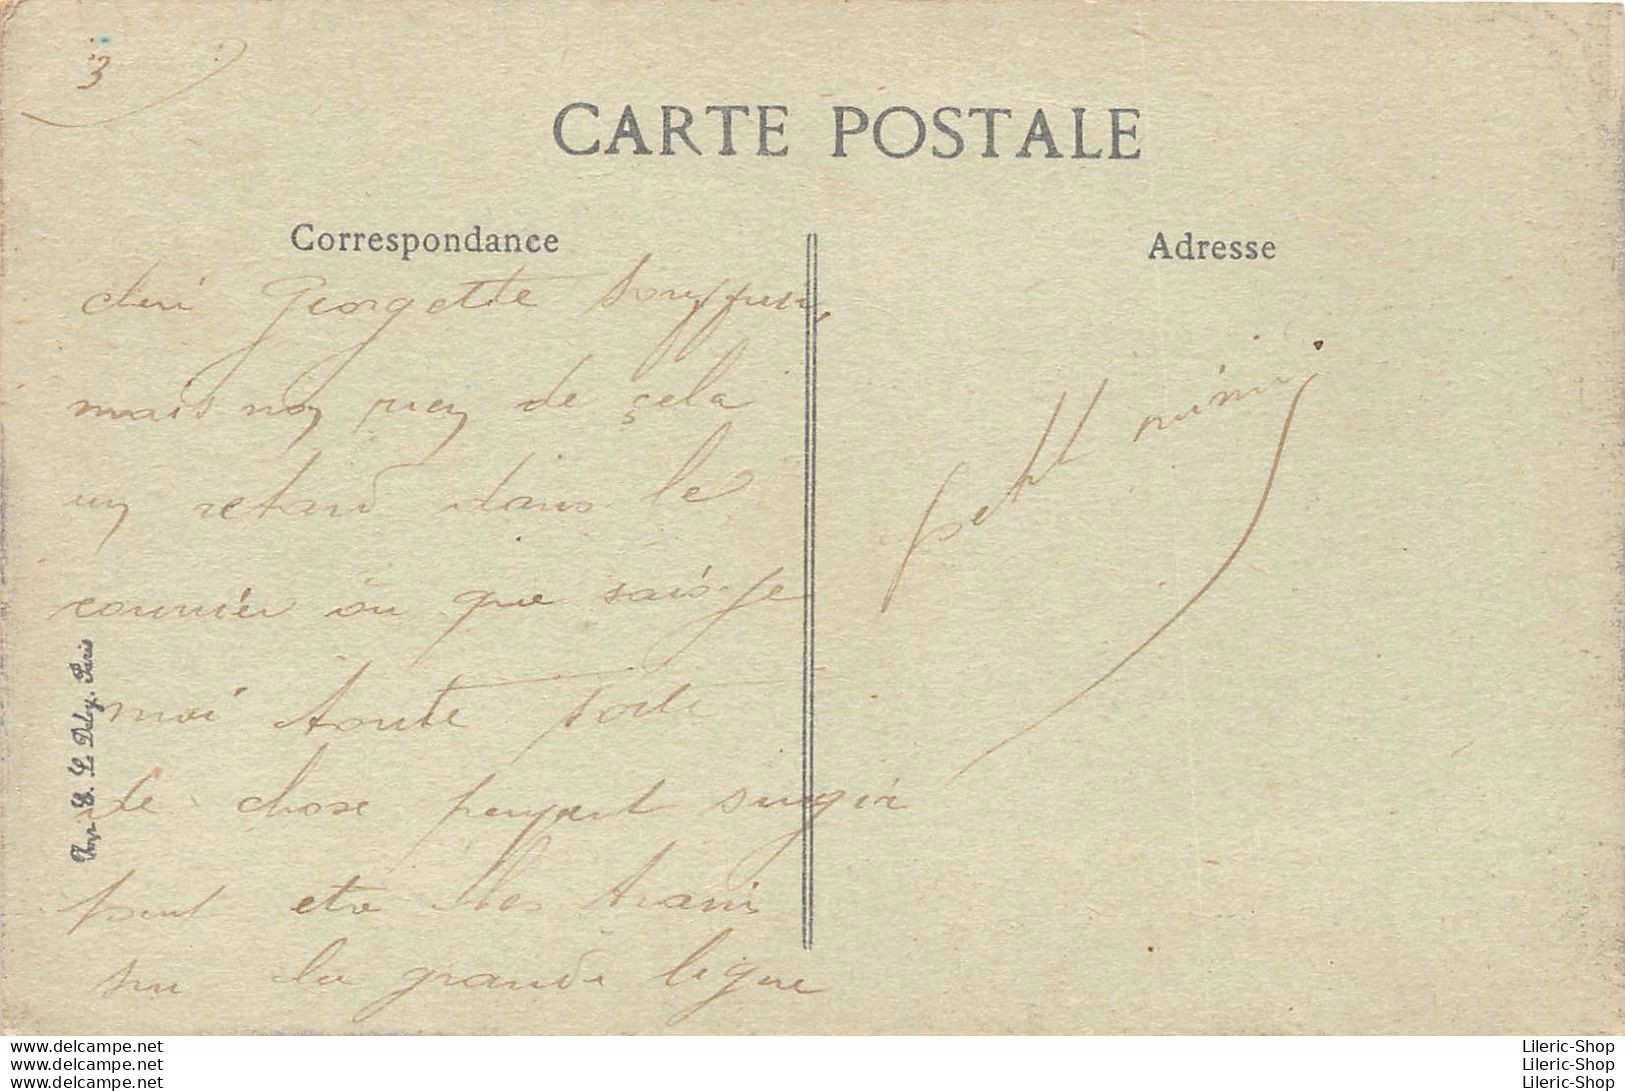 3
CARTE POSTALE
Correspondance
Adresse
Georgette
mais non rien de çela
un retard dans le
courrier ou que sais-je
moi toute sorte
de chose peuvent surgir
peut etre les trains
sur la grande ligne
petit mimi
Imp. E. Le Deley, Paris
www.delcampe.net
www.delcampe.net
www.delcampe.net
Lileric-Shop
Lileric-Shop
Lileric-Shop